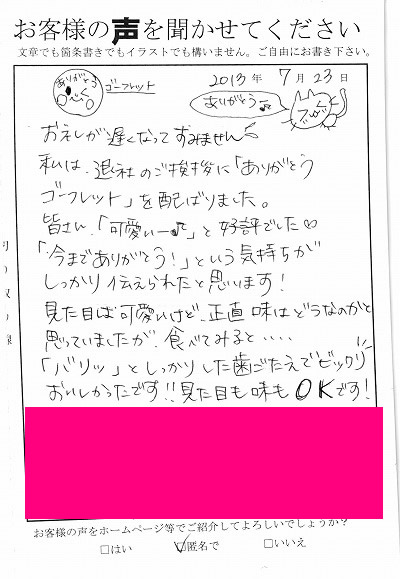 お客様の声を聞かせてください
文章でも箇条書きでもイラストでも構いません。ご自由にお書き下さい。
ありがとう
ゴーフレット
2013年 7月23日
ありがとう♪
おえしが遅くなってすみません
私は、退社のご挨拶に「ありがとう
ゴーフレット」を配ばりました。
皆さん、「可愛いー♪」と好評でした♡
「今までありがとう!」という気持ちが
しっかり伝えられたと思います!
見た目は可愛いけど、正直味はどうなのかと
思っていましたが、食べてみると・・・・
「バリッ」としっかりした歯ごたえでビックリ
おいしかったです!!見た目も味もOKです!
お客様の声をホームページ等でご紹介してよろしいでしょうか?
□はい ☑匿名で □いいえ